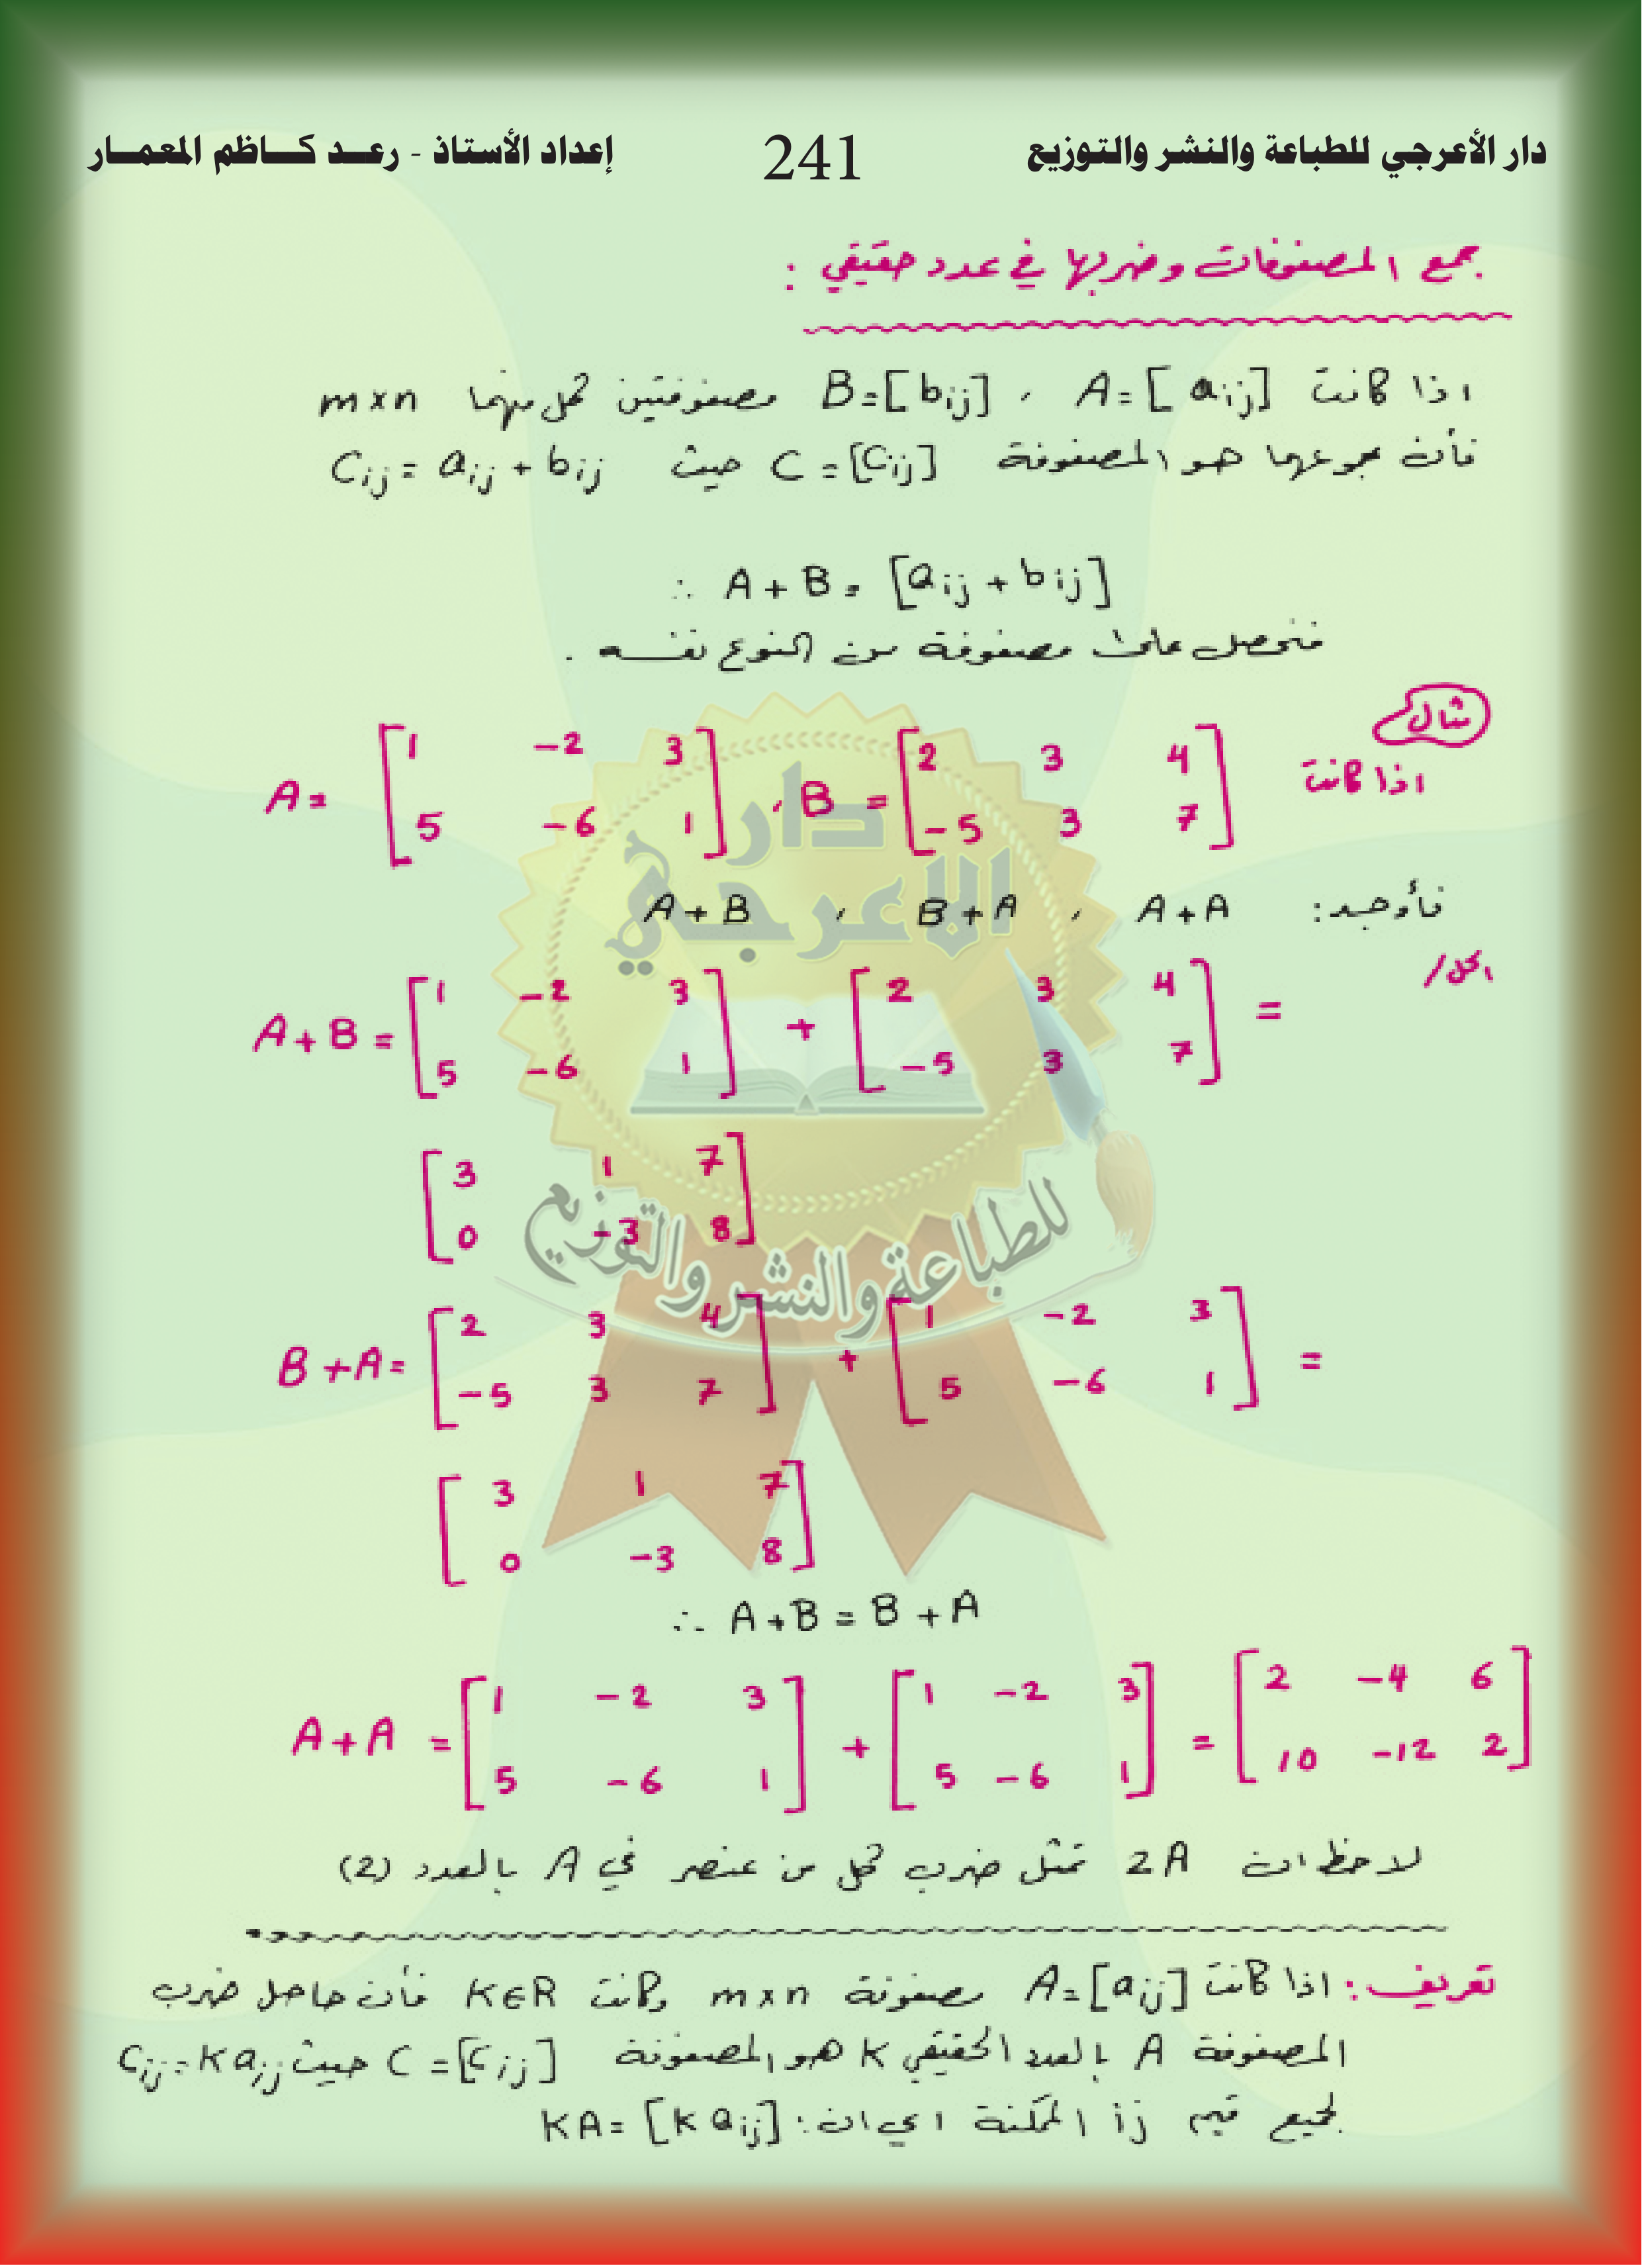 دار الأعرجي للطباعة والنشر والتوزيع 241 إعداد الأستاذ - رعــد كــاظم المعمــار
جمع المصفوفات وضربها في عدد حقيقي :
اذا كانت A=[aij] ، B=[bij] مصفوفتين كل منهما m×n
فأن مجموعهما هو المصفوفة C=[Cij] حيث Cij = aij + bij
∴ A+B = [aij + bij]
فنحصل على مصفوفة من النوع نفسه .
مثال
اذا كانت A= [1 -2 3
5 -6 1] ، B= [2 3 4
-5 3 7]
فأوجد: A+A ، B+A ، A+B
الحل/
A+B = [1 -2 3
5 -6 1] + [2 3 4
-5 3 7] =
[3 1 7
0 -3 8]
B+A= [2 3 4
-5 3 7] + [1 -2 3
5 -6 1] =
[3 1 7
0 -3 8]
∴ A+B = B+A
A+A = [1 -2 3
5 -6 1] + [1 -2 3
5 -6 1] = [2 -4 6
10 -12 2]
لاحظ ان 2A تمثل ضرب كل من عنصر في A بالعدد (2)
تعريف : اذا كانت A=[aij] مصفوفة m×n وكانت K∈R فأن حاصل ضرب
المصفوفة A بالعدد الحقيقي K هو المصفوفة C=[cij] حيث Cij=Kaij
لجميع قيم ij الممكنة اي ان: KA=[Kaij]
دار
الاعرجي
للطباعة والنشر والتوزيع